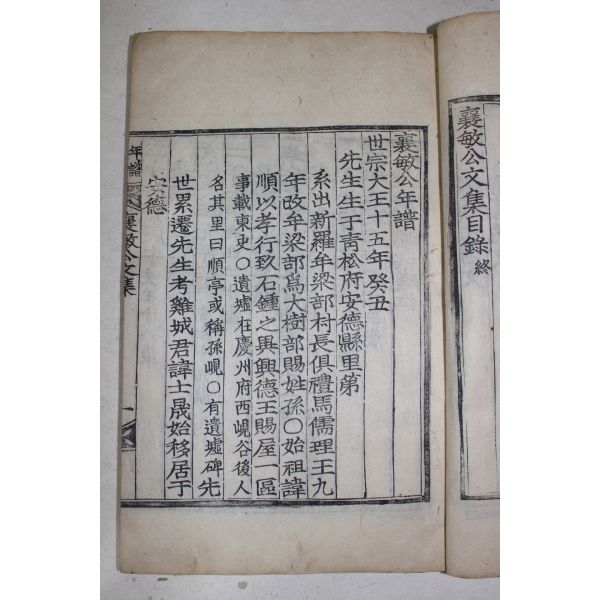 襄敏公文集目錄 終
襄敏公年譜
世宗大王十五年癸丑
先生生于靑松府安德縣里第
系出新羅牟梁部村長俱禮馬儒理王九
年改牟梁部爲大樹部賜姓孫○始祖諱
順以孝行致石鍾之異興德王賜屋一區
事載東史○遺墟在慶州府西峴谷後人
名其里曰順亭或稱孫峴○有遺墟碑先
世累遷先生考雞城君諱士晟始移居于
安德
年譜
襄敏公文集
一